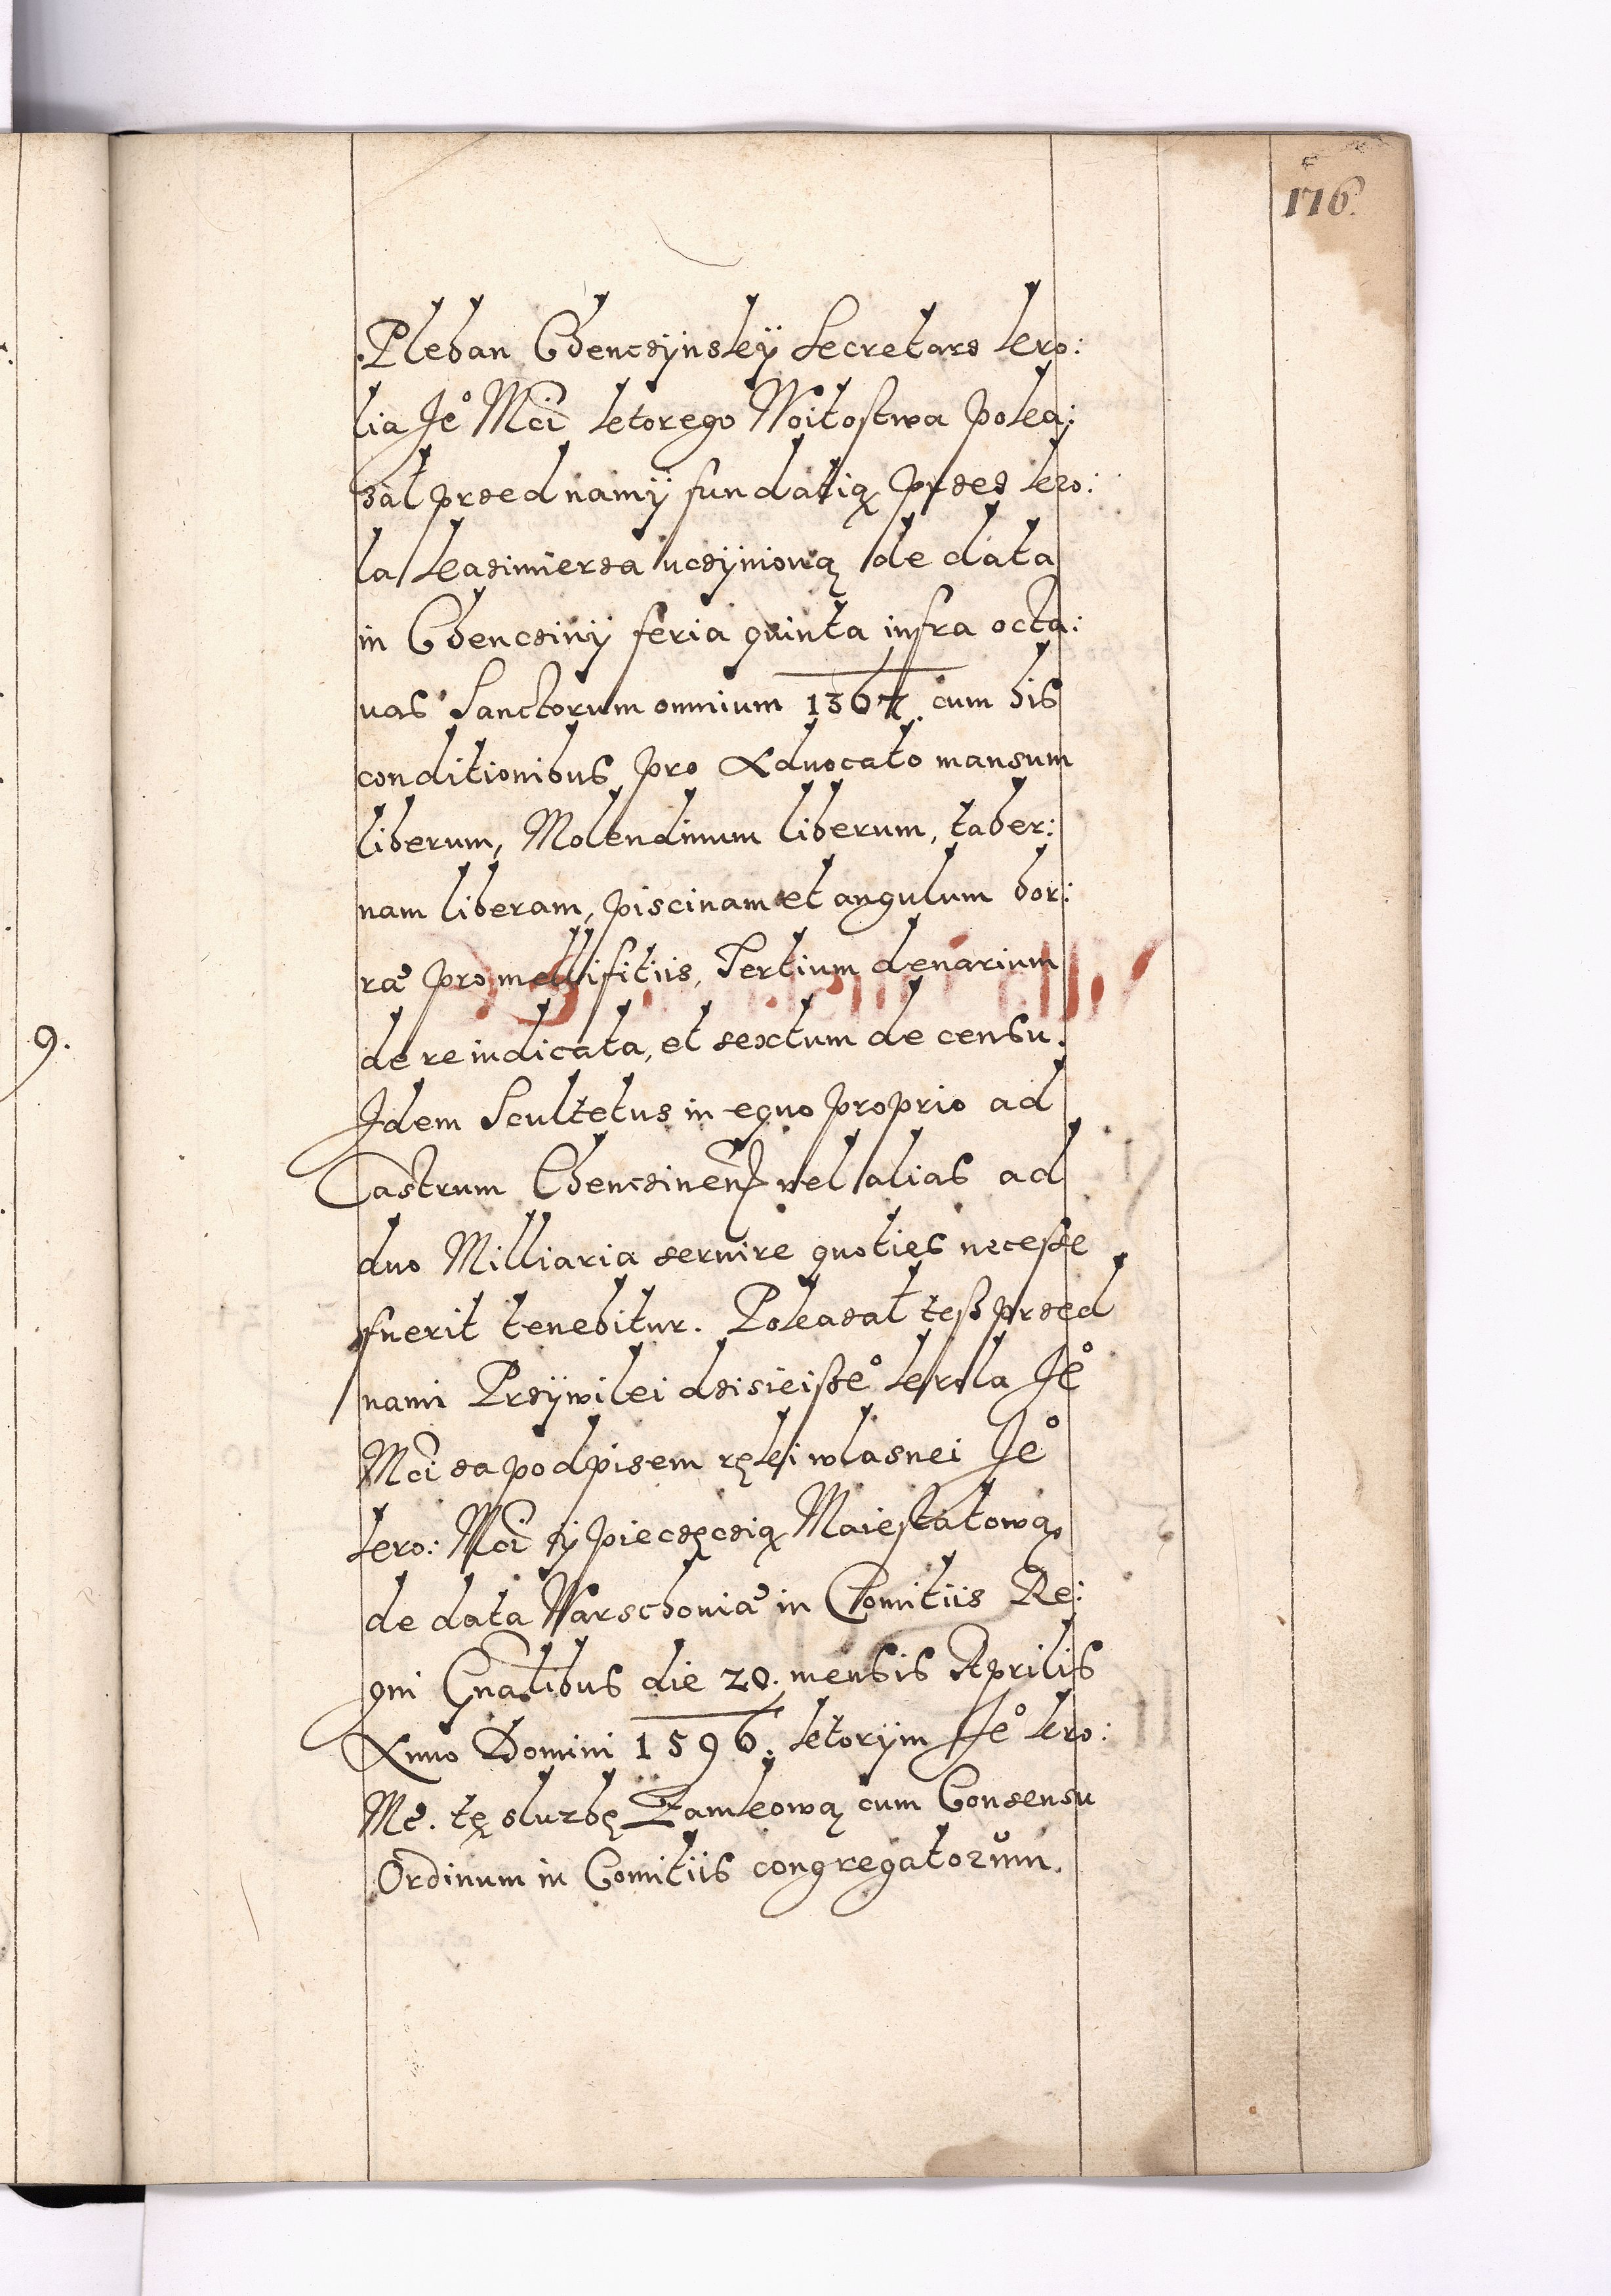 176.
Pleban Chenczÿnskÿ Secretarz kro:
lia Je° Mci ktorego Woitostwa poka:
zał przed namÿ fundatią przez kro:
la Kazimierza uczÿniową de data
in Chencziny feria quinta infra octa:
uas Sanctorum omnium 1367. cum his
conditionibus pro Aduocato mansum
liberum, Molendinum liberum, taber:
nam liberam, piscinam et angulum bor:
ræ pro mellifitiis, Tertium denarium
de re iudicata, et sextum de censu.
Idem Scultetus in equo proprio ad
Castrum Chenczinens vel alias ad
duo Milliaria seruire quoties necesse
fuerit tenebitur. Pokazał tesz przed
nami Przÿwilei dzisieisze° krola Je°
Mci za podpisem ręki własnei Je°
kro: Mci ÿ pieczęczią Maiestatową
de data Warschouiæ in Comitiis Re:
gni Gnalibus die 20. mensis Aprilis
Anno Domini 1596. ktorÿm Je° kro:
Mc. tę służbę Zamkową cum Consensu
Ordinum in Comitiis congregatorum.
9.